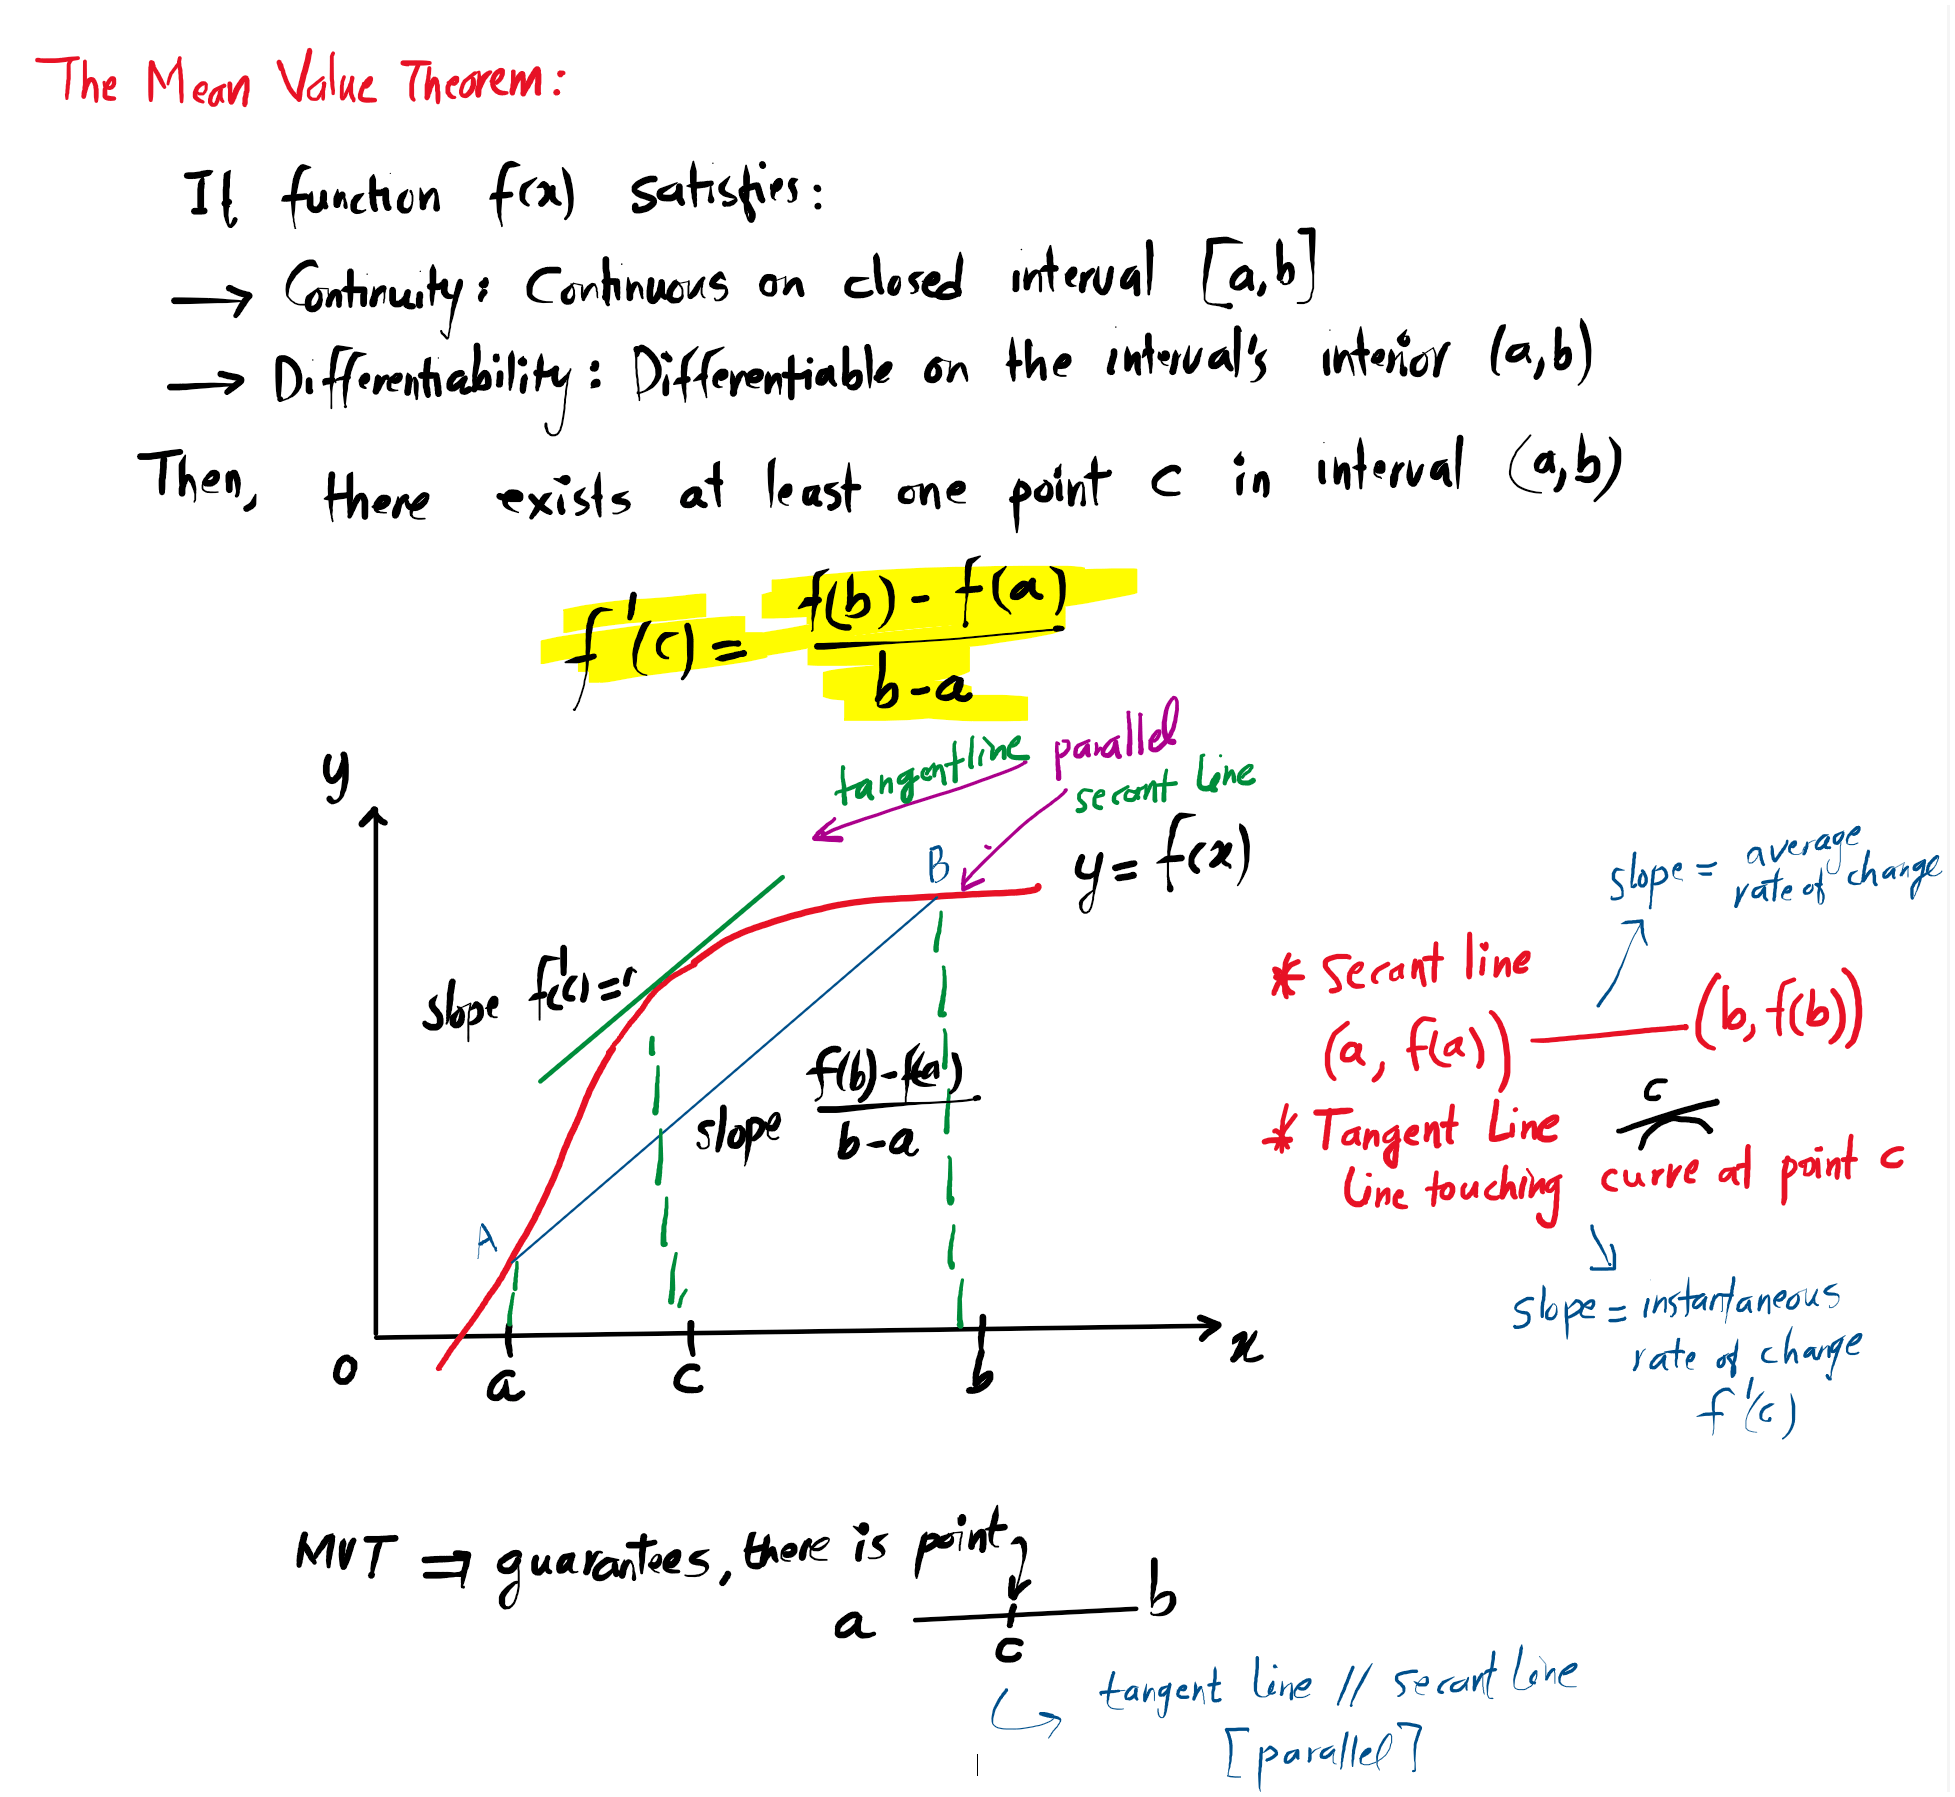 The Mean Value Theorem:
If function f(x) satisfies:
→ Continuity: Continuous on closed interval [a,b]
→ Differentiability: Differentiable on the interval's interior (a,b)
Then, there exists at least one point c in interval (a,b)
f'(c) = (f(b) - f(a)) / (b-a)
y
tangent line parallel
secant line
B
y = f(x)
slope f'(c) =
slope (f(b)-f(a)) / (b-a)
A
0
a
c
b
x
slope = average
rate of change
* Secant line
(a, f(a)) — (b, f(b))
c
* Tangent Line
Line touching curve at point c
slope = instantaneous
rate of change
f'(c)
MVT ⇒ guarantees, there is point
a
b
c
tangent line // secant line
[parallel]